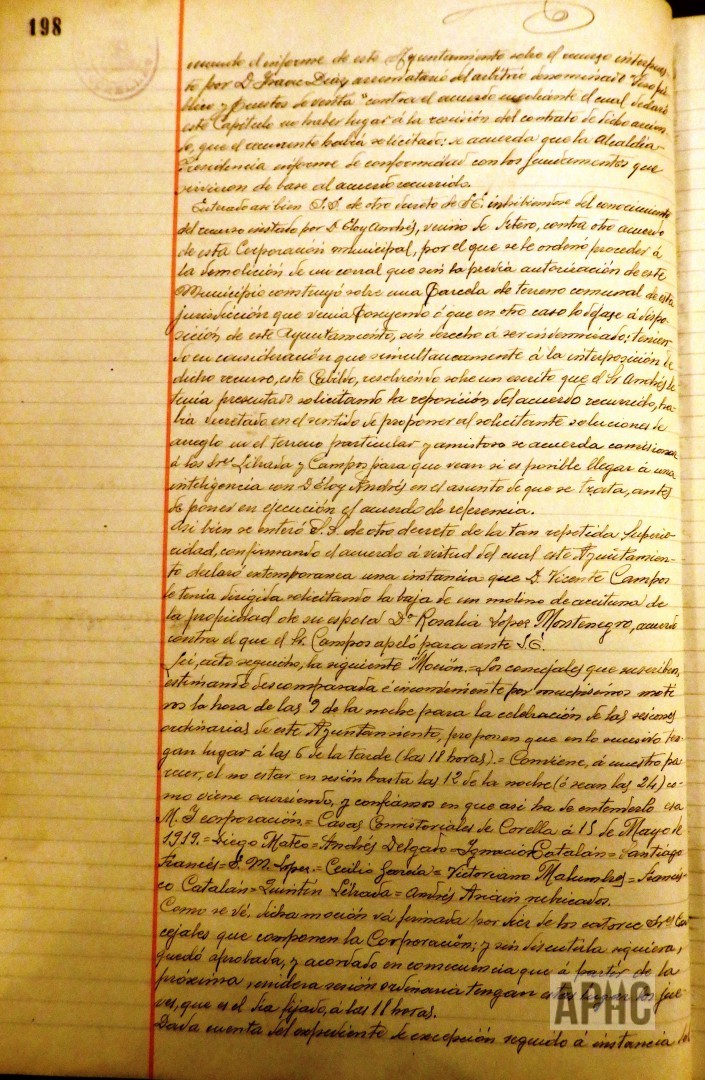 198
mando el informe de este Ayuntamiento sobre el recurso interpues-
to por D. Isaac Díaz arrendatario del arbitrio denominado "Vino pú-
blico y Puestos de venta" contra el acuerdo mediante el cual declaró
este Capítulo no haber lugar á la rescisión del contrato de dicho arrien-
do, que el recurrente había solicitado: se acuerda que la Alcaldía-
Presidencia informe de conformidad con los fundamentos que
sirvieron de base al acuerdo recurrido.
Enterado así bien S.S. de otro decreto de S.E. inhibiéndose del conocimiento
del recurso instado por D. Eloy Andrés, vecino de Fitero, contra otro acuerdo
de esta Corporación municipal, por el que se le ordenó proceder á
la demolición de un corral que sin la previa autorización de este
Municipio construyó sobre una Parcela de terreno comunal de esta
jurisdicción que venía Poseyendo ó que en otro caso lo dejase á dispo-
sición de este Ayuntamiento, sin derecho á ser indemnizado: tenien-
do en consideración que simultáneamente á la interposición de
dicho recurso, este Cabildo, resolviendo sobre un escrito que el Sr. Andrés le
tenía presentado solicitando la reposición del acuerdo recurrido, ha-
bía decretado en el sentido de proponer al solicitante soluciones de
arreglo en el terreno particular y amistoso se acuerda comisionar
á los Sres. Librada y Campos para que vean si es posible llegar á una
inteligencia con D. Eloy Andrés en el asunto de que se trata, antes
de poner en ejecución el acuerdo de referencia.
Así bien se enteró S.S. de otro decreto de la tan repetida Superio-
ridad, confirmando el acuerdo á virtud del cual este Ayuntamien-
to declaró extemporanea una instancia que D. Vicente Campos
le tenía dirigida solicitando la baja de un molino de aceituna de
la propiedad de su esposa Dª Rosalia Lopez Montenegro, acuerdo
contra el que el Sr. Campos apeló para ante S.E.
Leí, acto seguido, la siguiente "Moción.= Los concejales que suscriben,
estimando descompasada é inconveniente por muchísimos moti-
vos la hora de las 9 de la noche para la celebración de las sesiones
ordinarias de este Ayuntamiento, proponen que en lo sucesivo ten-
gan lugar á las 6 de la tarde (las 18 horas).= Conviene, á nuestro pa-
recer, el no estar en sesión hasta las 12 de la noche (ó sean las 24) co-
mo viene ocurriendo, y confiamos en que así ha de entenderlo esa
M. I. corporación= Casas Consistoriales de Corella á 15 de Mayo de
1919.= Diego Mateo= Andrés Delgado= Ignacio Catalán= Santiago
Francés= P. M. Lopez.= Cecilio García= Victoriano Malumbres= Francis-
co Catalán= Quintín Librada= Andrés Arnáin rubricados.
Como se vé, dicha moción vá firmada por diez de los catorce Sres Con-
cejales que componen la Corporación; y sin discutirla siquiera,
quedó aprobada, y acordado en consecuencia que á partir de la
próxima, venidera sesión ordinaria tengan estas lugar los jue-
ves, que es el día fijado, á las 18 horas.
Dada cuenta del expediente de excepción seguido á instancia del
APHC